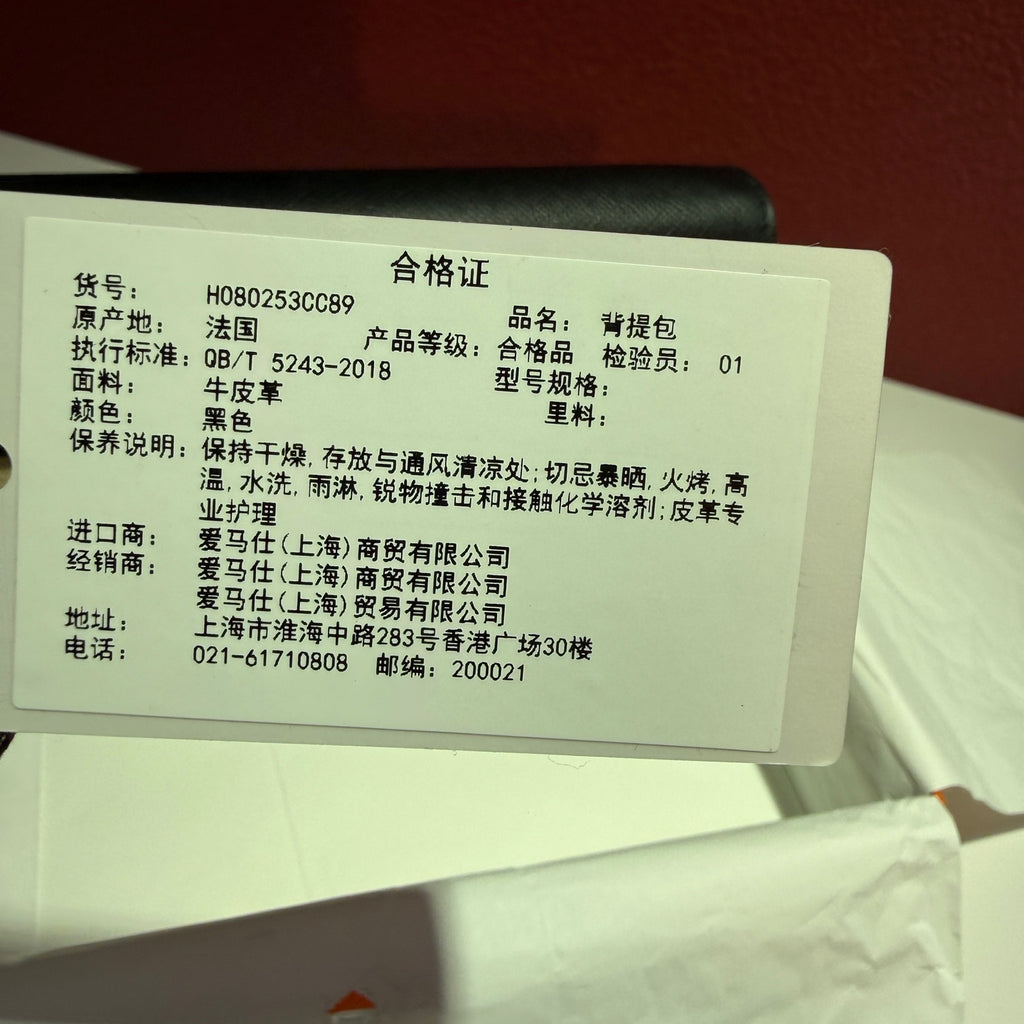 合格证
货号： H080253CC89 品名： 背提包
原产地： 法国 产品等级：合格品 检验员： 01
执行标准：QB/T 5243-2018 型号规格：
面料： 牛皮革 里料：
颜色： 黑色
保养说明：保持干燥,存放与通风清凉处;切忌暴晒,火烤,高
温,水洗,雨淋,锐物撞击和接触化学溶剂;皮革专
业护理
进口商： 爱马仕(上海)商贸有限公司
经销商： 爱马仕(上海)商贸有限公司
爱马仕(上海)贸易有限公司
地址： 上海市淮海中路283号香港广场30楼
电话： 021-61710808 邮编：200021